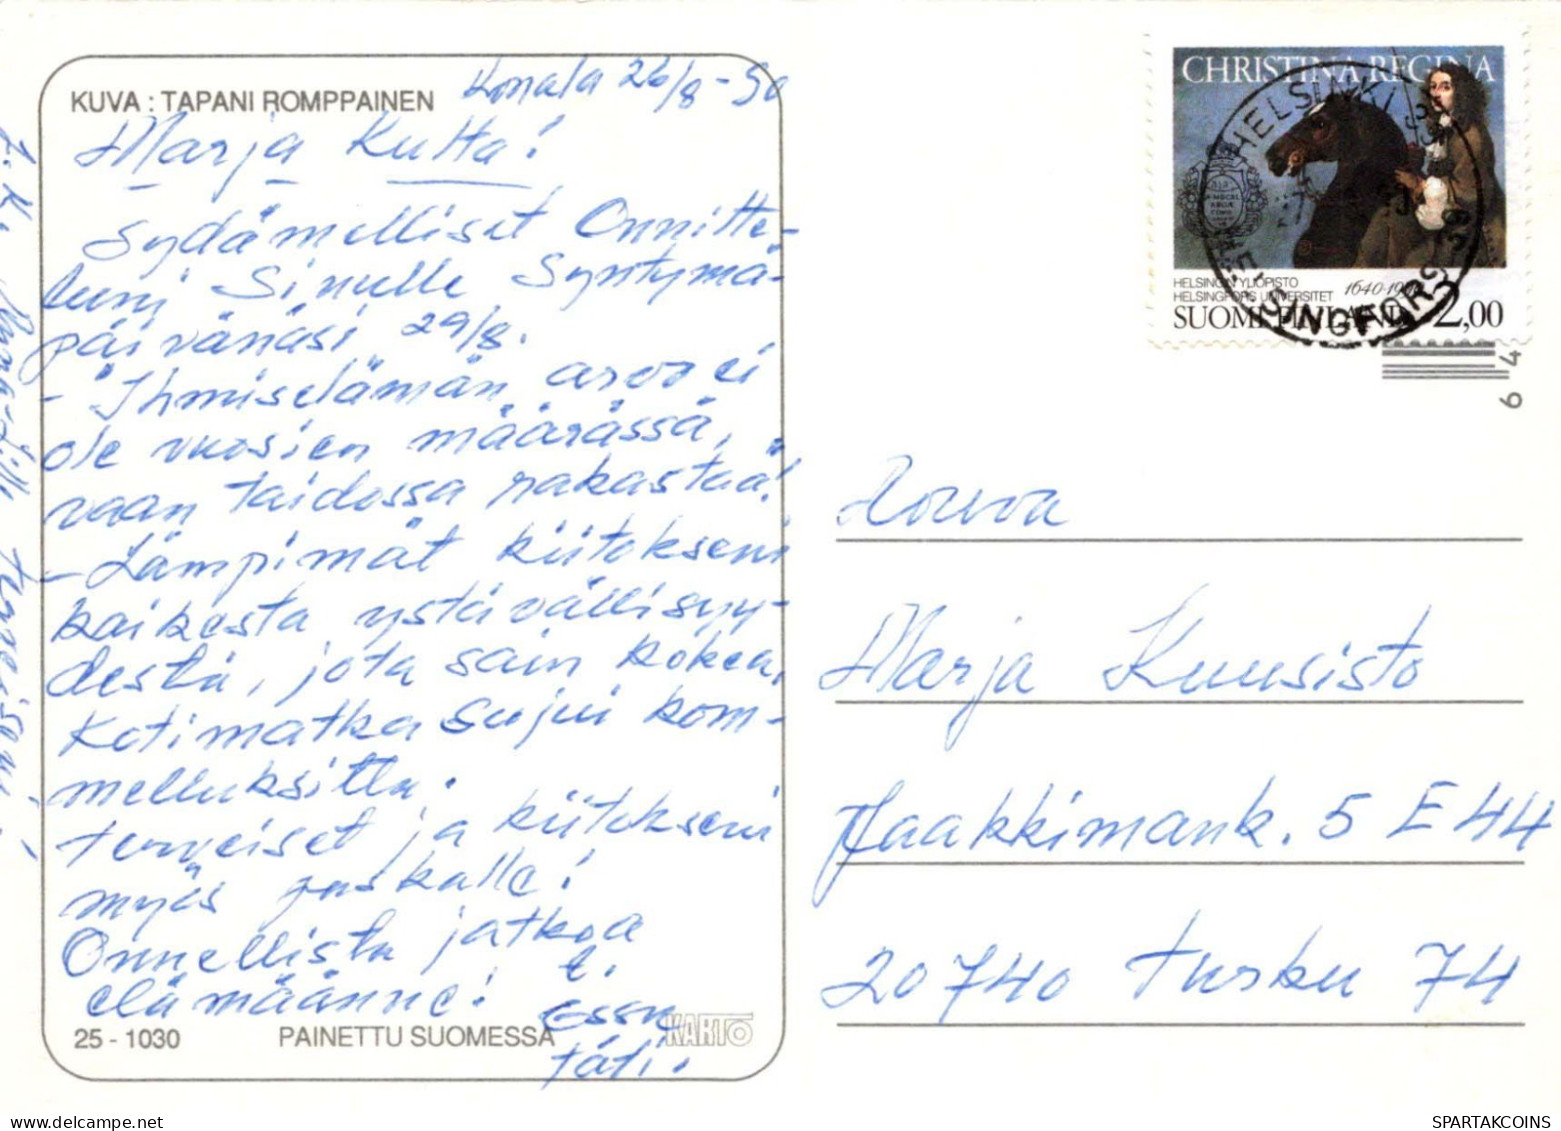 KUVA : TAPANI ROMPPAINEN
Konala 26/8-90
Marja Kulta!
Sydämelliset Onnitte-
luni Sinulle Syntymä-
päivänäsi 29/8.
- "Ihmiselämän arvo ei
ole vuosien määrässä,
vaan taidossa rakastaa!"
- Lämpimät kiitokseni
kaikesta ystävällisyy-
destä, jota sain kokea,
Kotimatka sujui kom-
melluksitta.
terveiset ja kiitokseni
myös
Onnellista jatkoa
elämäänne! t.
Essu
täti.
25 - 1030
PAINETTU SUOMESSA
KARTO
CHRISTINA REGINA
HELSINGIN YLIOPISTO
HELSINGFORS UNIVERSITET
1640-1990
SUOMI FINLAND 2,00
HELSINKI
HELSINGFORS
64
Rouva
Marja Kuusisto
Jaakkimank. 5 E 44
20740 Turku 74
SPARTAKCOINS